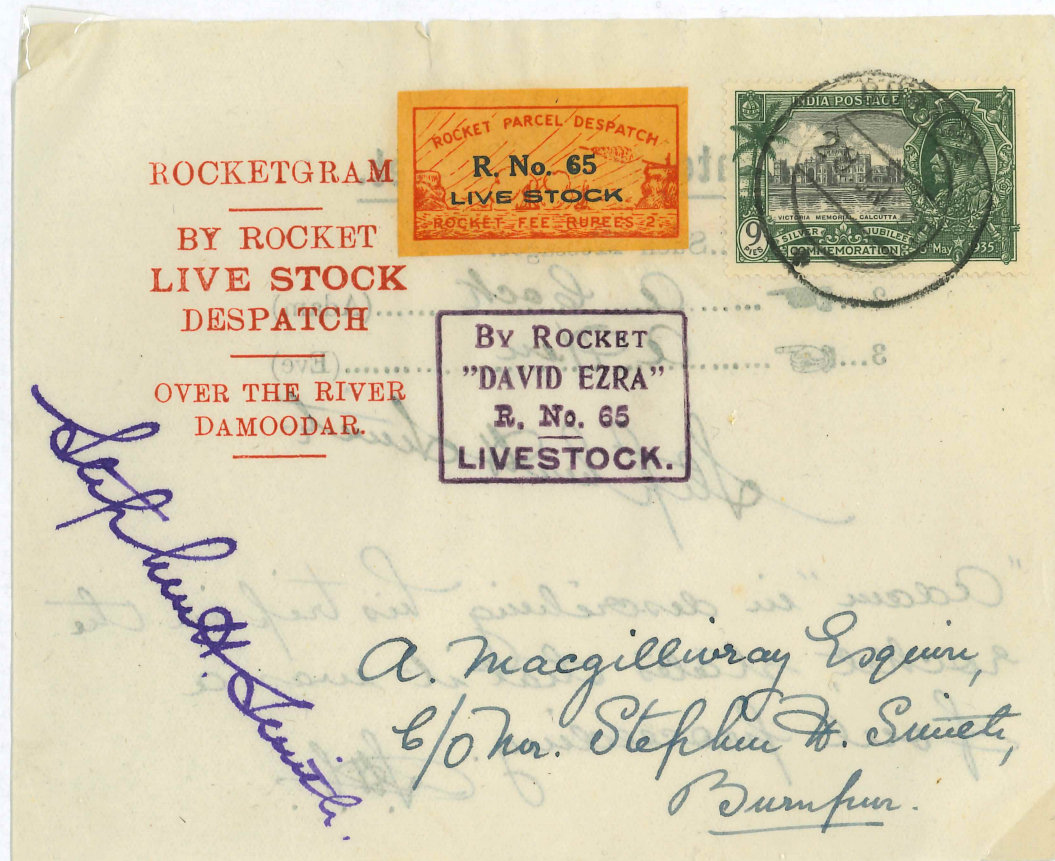 ROCKETGRAM
BY ROCKET
LIVE STOCK
DESPATCH
OVER THE RIVER
DAMOODAR.
ROCKET PARCEL DESPATCH
R. No. 65
LIVE STOCK
ROCKET FEE RUPEES 2.
INDIA POSTAGE
VICTORIA MEMORIAL, CALCUTTA
9 PIES
SILVER JUBILEE
COMMEMORATION
6th May 1935
BY ROCKET
"DAVID EZRA"
R. No. 65
LIVESTOCK.
Stephen H Smith.
A. Macgillivray Esquire,
C/O Mr. Stephen H. Smith,
Burnpur.
2
a Cock (Adam)
3
a Hen (Eve)
"Adam" in describing his trip in the